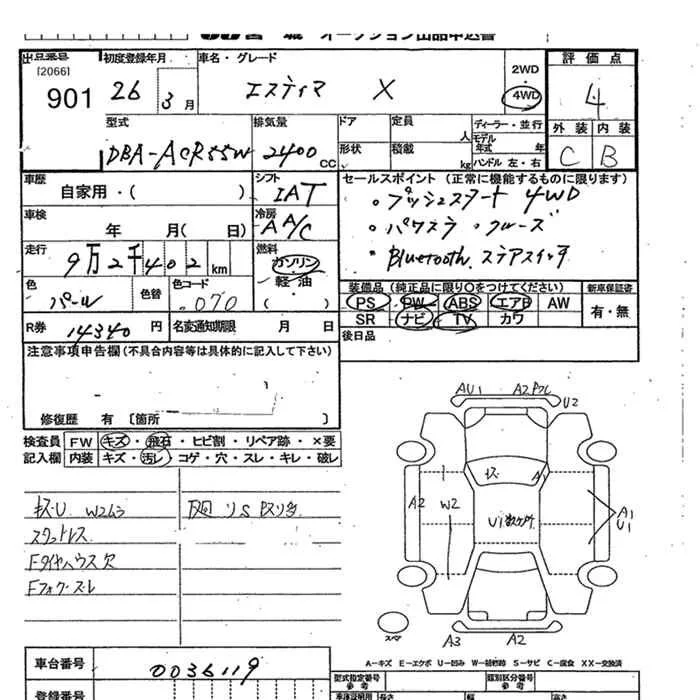 宮 城 オークション出品申込書
出品番号 初度登録年月 車名・グレード 2WD 評価点
[2066]
901 26 3月 エスティマ X 4WD 4
型式 排気量 ドア 定員 人 ディーラー・並行 外装 内装
DBA-ACR55W 2400cc 形状 積載 kg モデル年式 年 ハンドル 左・右 C B
車歴 シフト セールスポイント (正常に機能するものに限ります)
自家用・( ) IAT ・プッシュスタート 4WD
車検 冷房 ・パワスラ ・クルーズ
年 月( 日) AA/C ・Bluetooth ステアスイッチ
走行 燃料
9万2千402km ガソリン
色 色替 色コード 軽・油 装備品 (純正品に限り○をつけてください) 新車保証書
パール 070 ( ) PS PW ABS エアB AW 有・無
R券 14340円 名変通知期限 月 日 SR ナビ TV カワ
注意事項申告欄(不具合内容等は具体的に記入して下さい) 後日品
修復歴 有 〔箇所 〕
検査員 FW キズ・飛石・ヒビ割・リペア跡・×要
記入欄 内装 キズ・汚レ・コゲ・穴・スレ・キレ・破レ
AU1 A2 U2
キズ A1
A2 W2 U1 A1
U1
キズ・U W2ムラ
スタットレス
Fタイヤハウス欠
Fフォグ・ズレ
スペア A3 A2
A-キズ E-エクボ U-凹み W-補修跡 S-サビ C-腐食 XX-交換済
車台番号 0036119
型式指定番号 類別区分番号
参考 参考
登録番号 車庫証明用 長さ 幅 高さ